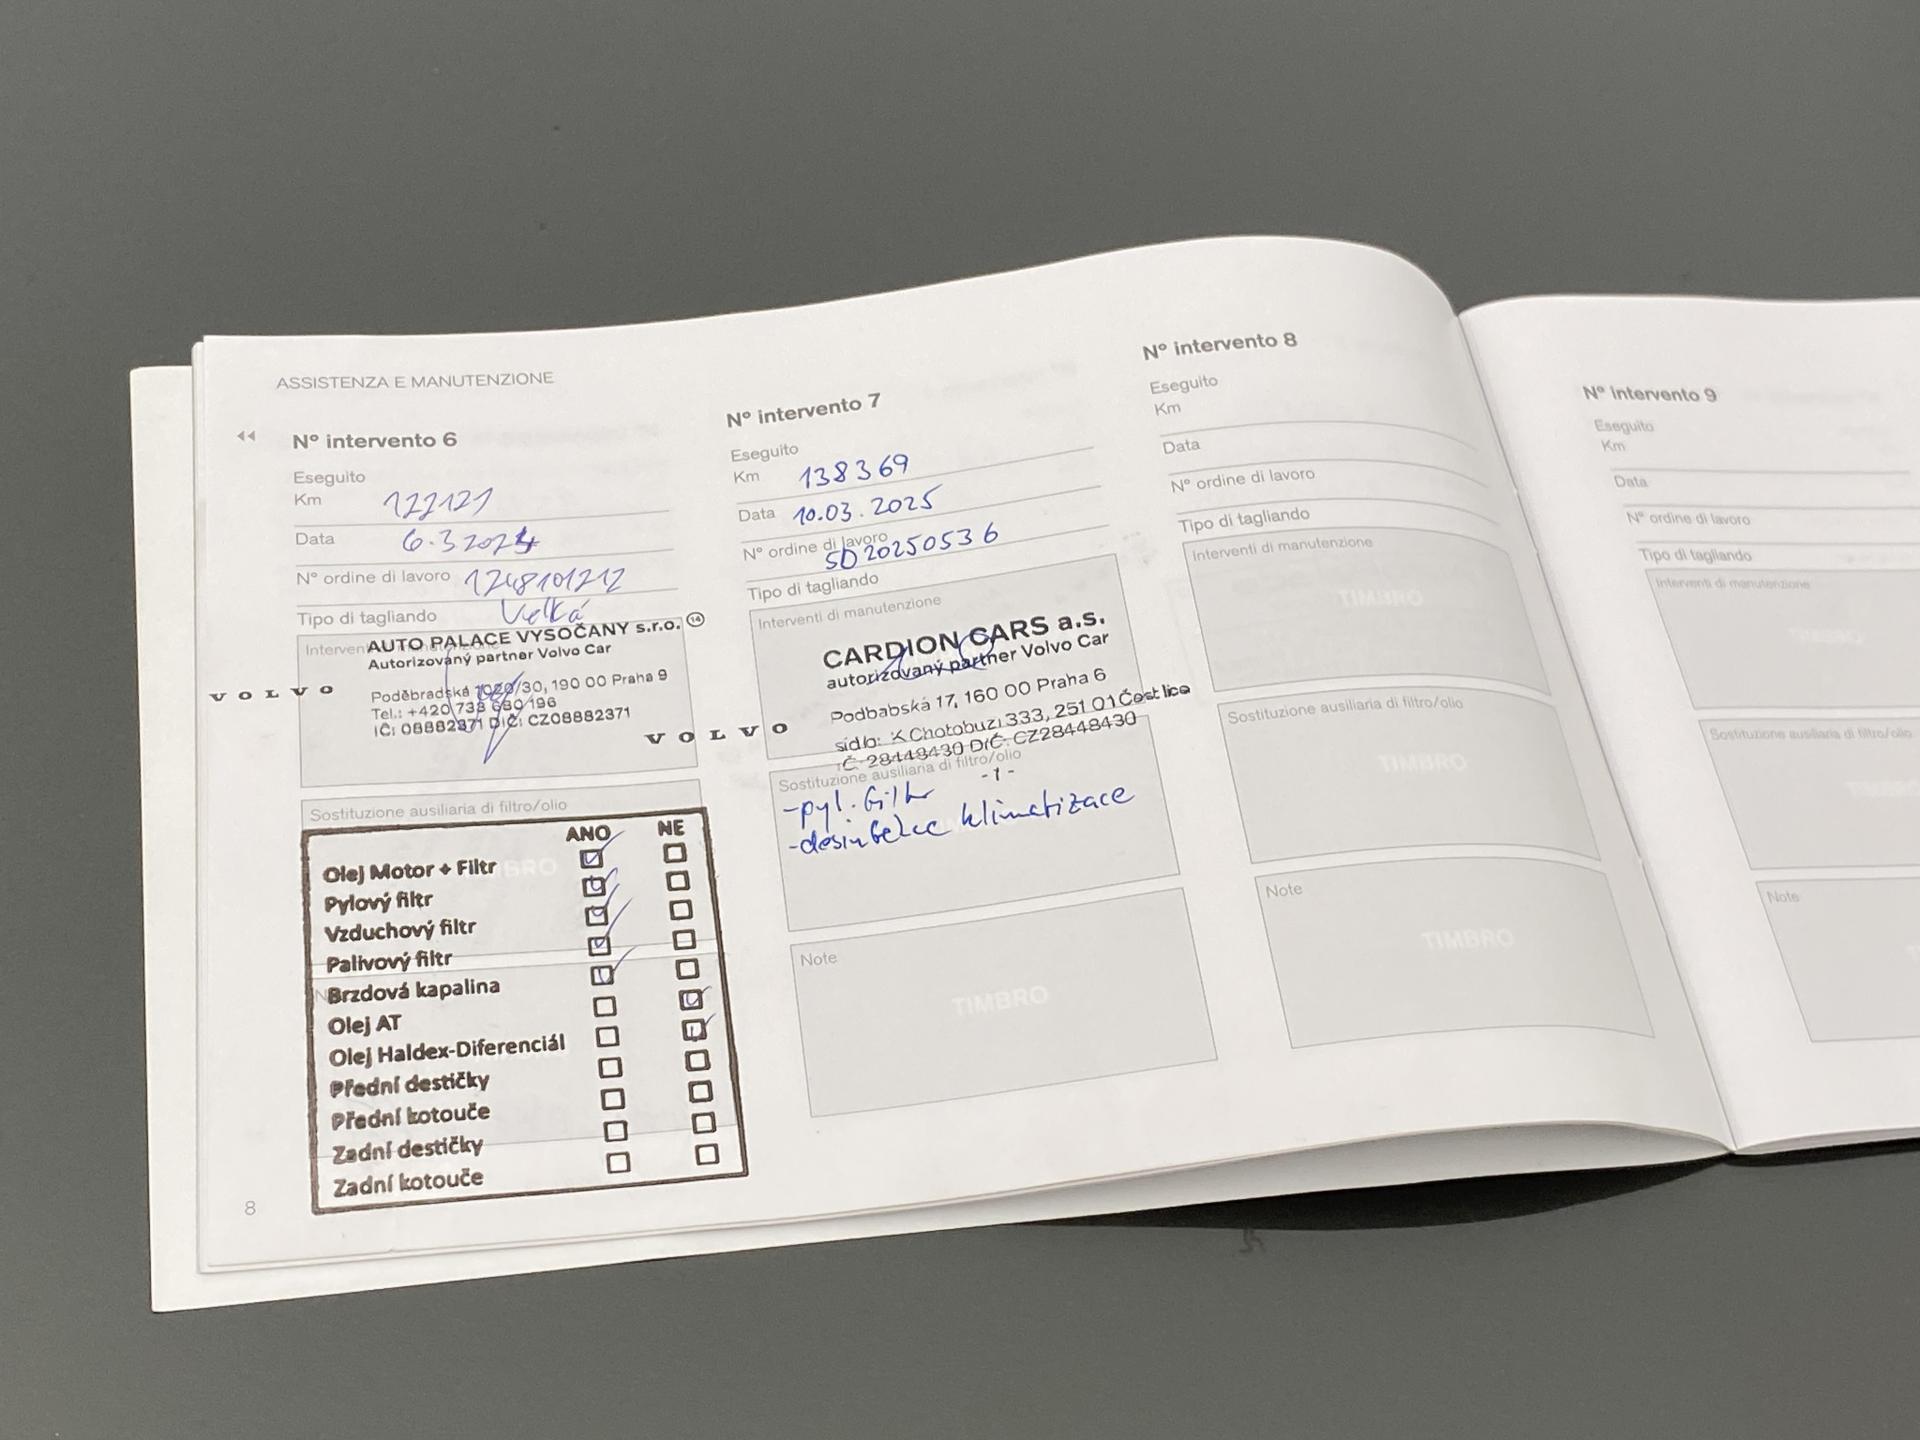 ASSISTENZA E MANUTENZIONE
Nº intervento 6
Eseguito
Km 122121
Data 6.3.2024
Nº ordine di lavoro 1248101212
Tipo di tagliando Velká
AUTO PALACE VYSOČANY s.r.o. 14
Autorizovaný partner Volvo Car
VOLVO
Poděbradská 1020/30, 190 00 Praha 9
Tel.: +420 738 680 196
IČ: 08882371 DIČ: CZ08882371
Sostituzione ausiliaria di filtro/olio
ANO NE
Olej Motor + Filtr
Pylový filtr
Vzduchový filtr
Palivový filtr
Brzdová kapalina
Olej AT
Olej Haldex-Diferenciál
Přední destičky
Přední kotouče
Zadní destičky
Zadní kotouče
8
Nº intervento 7
Eseguito
Km 138369
Data 10.03.2025
Nº ordine di lavoro
SD20250536
Tipo di tagliando
Interventi di manutenzione
CARDION CARS a.s.
autorizovaný partner Volvo Car
Podbabská 17, 160 00 Praha 6
VOLVO
sídlo: K Chotobuzi 333, 251 01 Čestlice
IČ: 28448430 DIČ: CZ28448430
Sostituzione ausiliaria di filtro/olio
-1-
-pyl. filtr
-desinfekce klimatizace
Note
TIMBRO
Nº intervento 8
Eseguito
Km
Data
Nº ordine di lavoro
Tipo di tagliando
Interventi di manutenzione
TIMBRO
Sostituzione ausiliaria di filtro/olio
TIMBRO
Note
TIMBRO
Nº intervento 9
Eseguito
Km
Data
Nº ordine di lavoro
Tipo di tagliando
Interventi di manutenzione
TIMBRO
Sostituzione ausiliaria di filtro/olio
Note